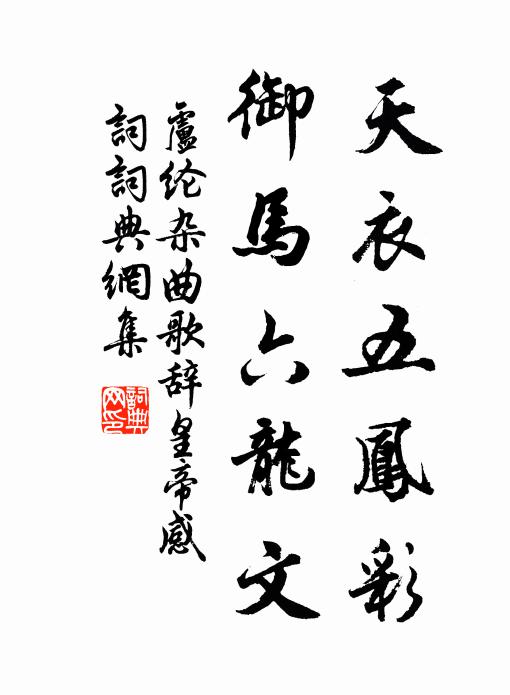 天衣五鳳彩
御馬六龍文
盧纶杂曲歌辞皇帝感
詞詞典網集
詞典
网印